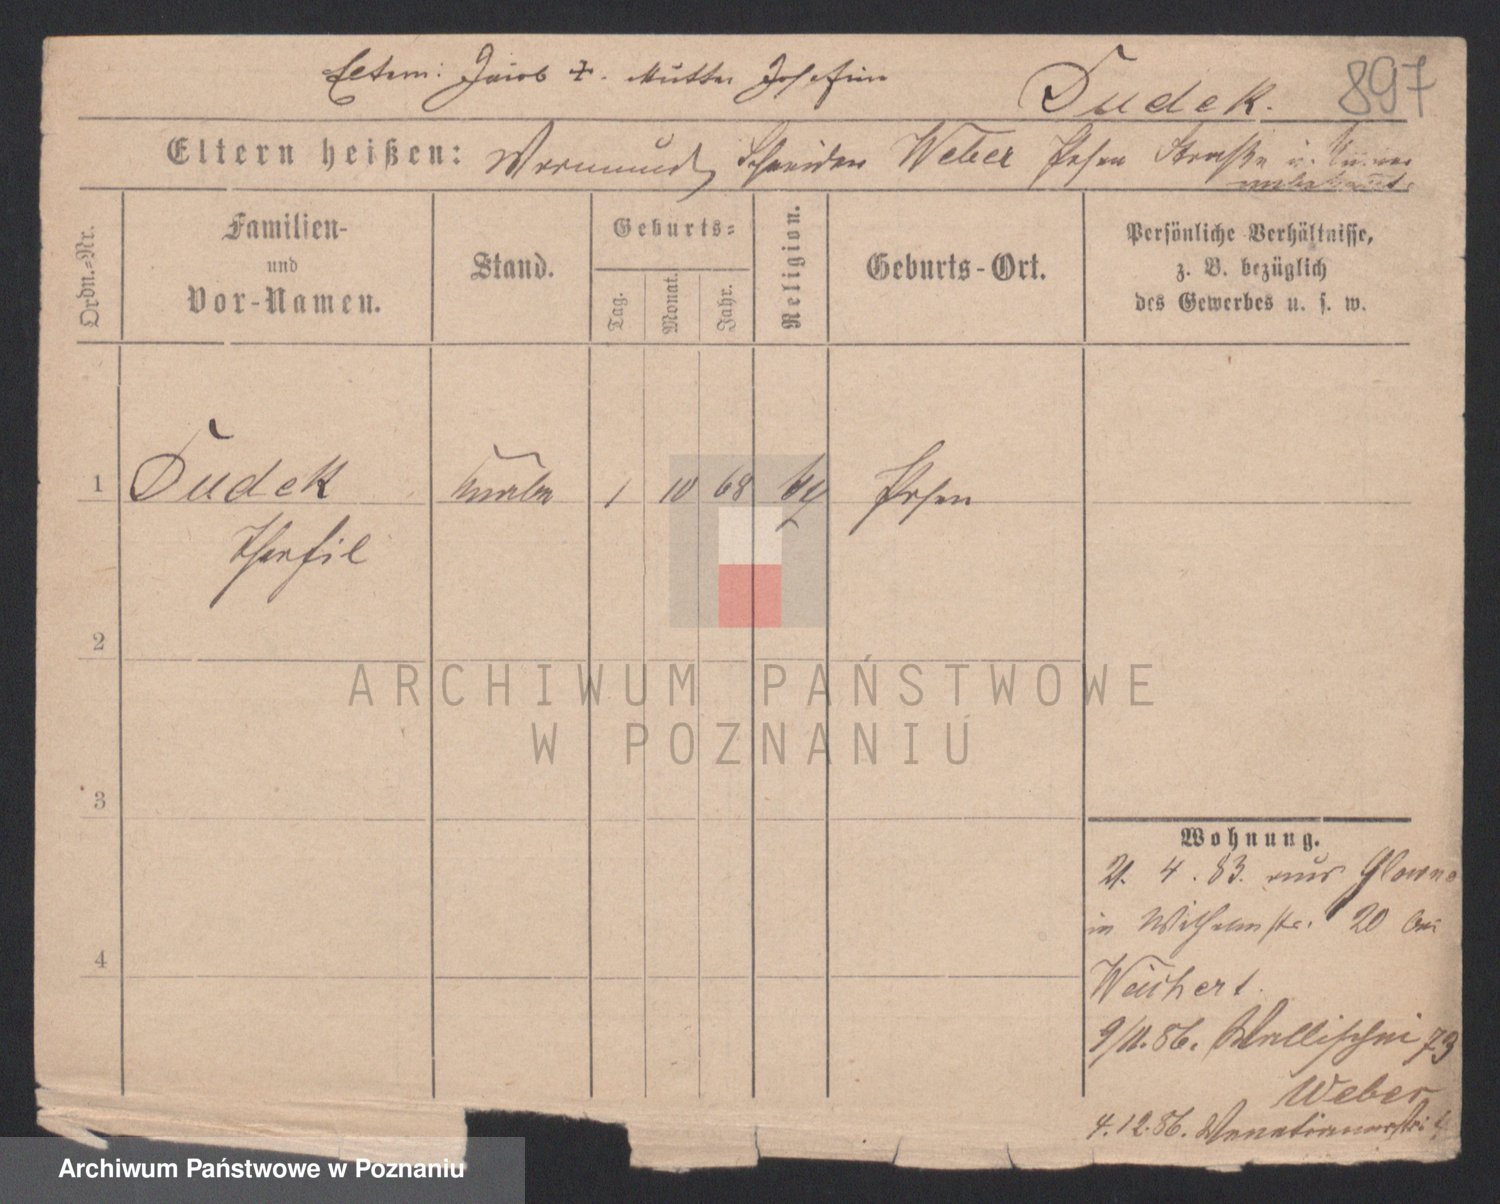 Eltern: Jacob +. Mutter Josefine
Dudek. 897
Eltern heißen: Vormund Schneider Weber Posen Straße u. Nummer
unbekannt.
Ordn.-Nr.
Familien-
und
Vor-Namen.
Stand.
Geburts-
Tag.
Monat.
Jahr.
Religion.
Geburts-Ort.
Persönliche Verhältnisse,
z. B. bezüglich
des Gewerbes u. s. w.
1 Dudek 1 10 68 Posen
2
3
4
ARCHIWUM PAŃSTWOWE
W POZNANIU
Wohnung.
21. 4. 83. aus Glowno
in Wilhelmstr. 20 bei
Weichert.
9/11.86. Wallischei 73
Weber
4.12.86. Venetianerstr.
Archiwum Państwowe w Poznaniu